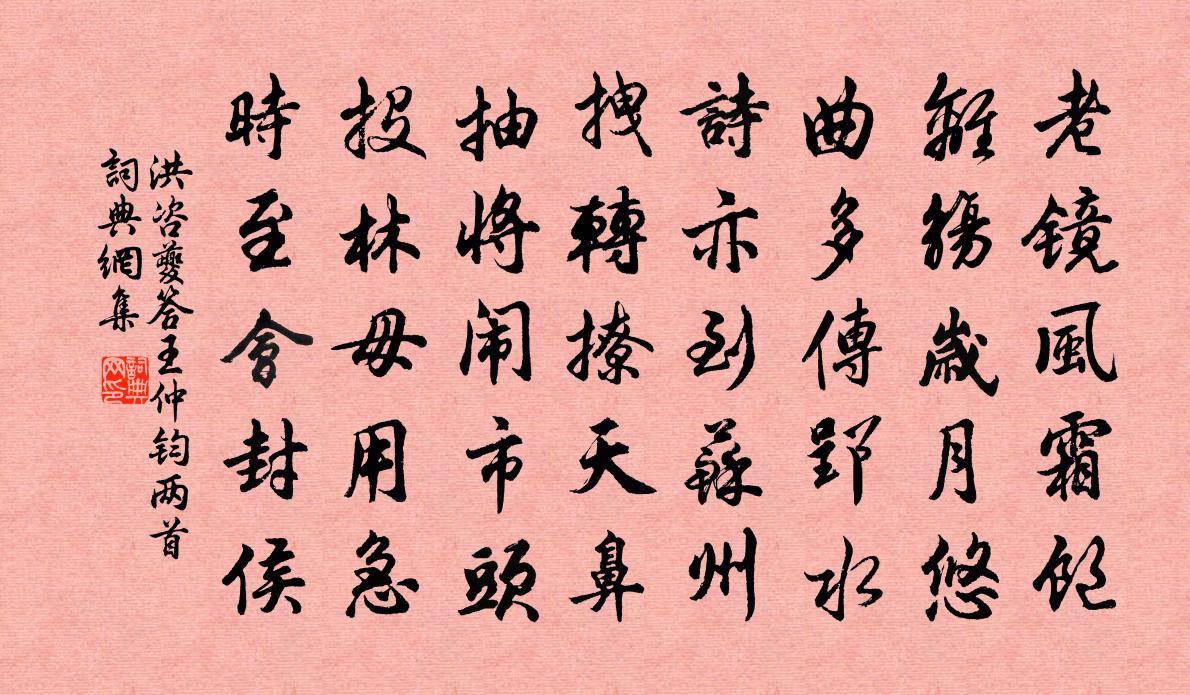 老镜風霜飽
離觴歲月悠
曲多傳郢水
詩亦到蘇州
拽轉撩天鼻
抽將闹市頭
投林毋用急
時至會封侯
洪咨夔答王仲钧两首
詞典網集
詞典网印